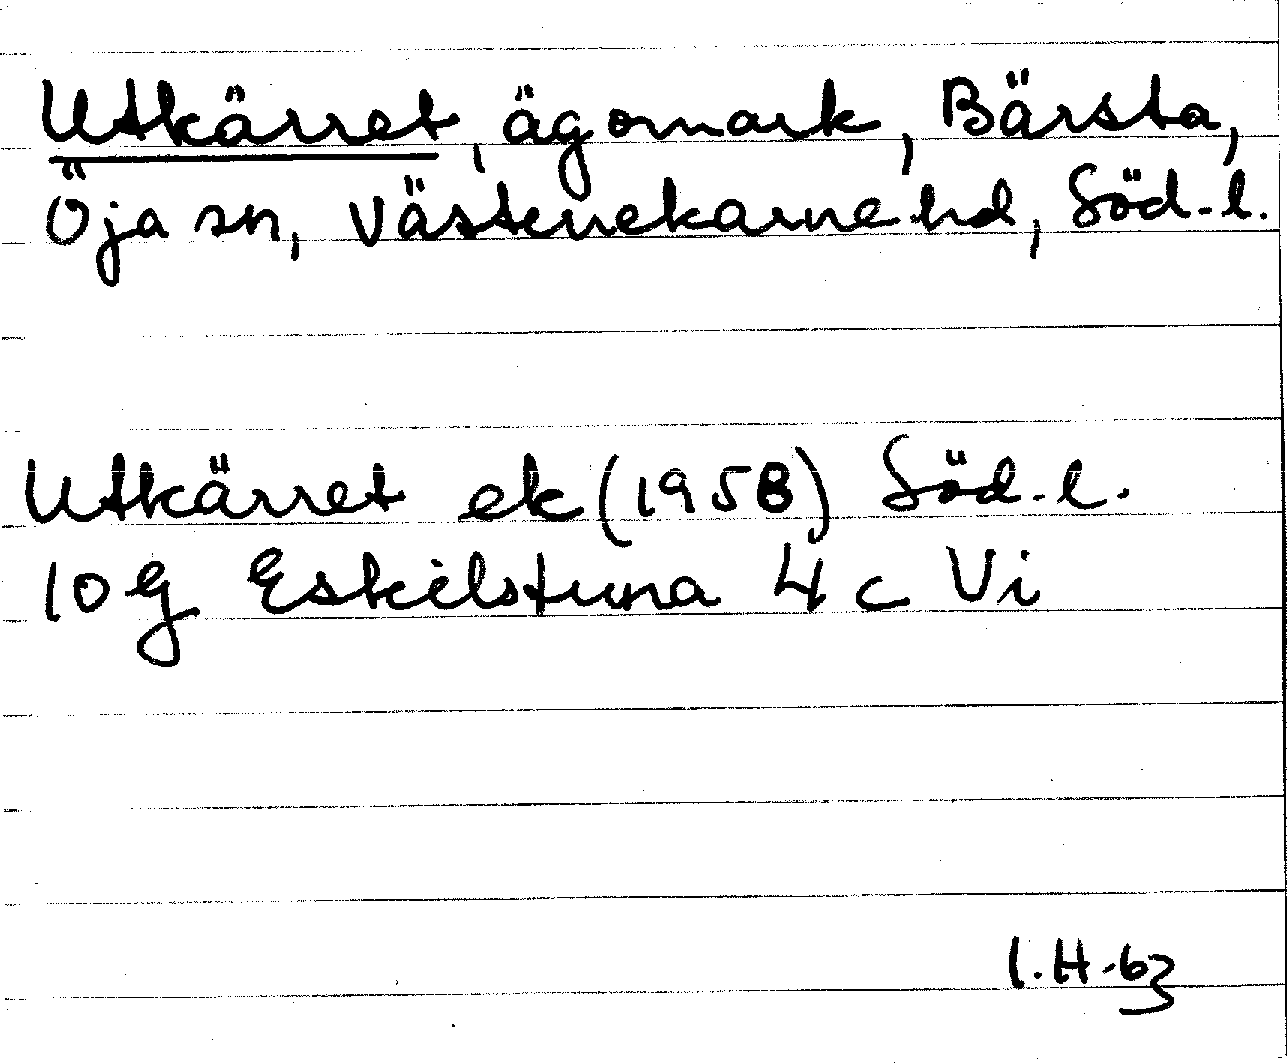 Utkärret, ägomark, Bärsta,
Öja sn, Västerrekarne hd, Söd.l.
Utkärret ek (1958) Söd.l.
10g Eskilstuna 4c Vi
I.H.-63